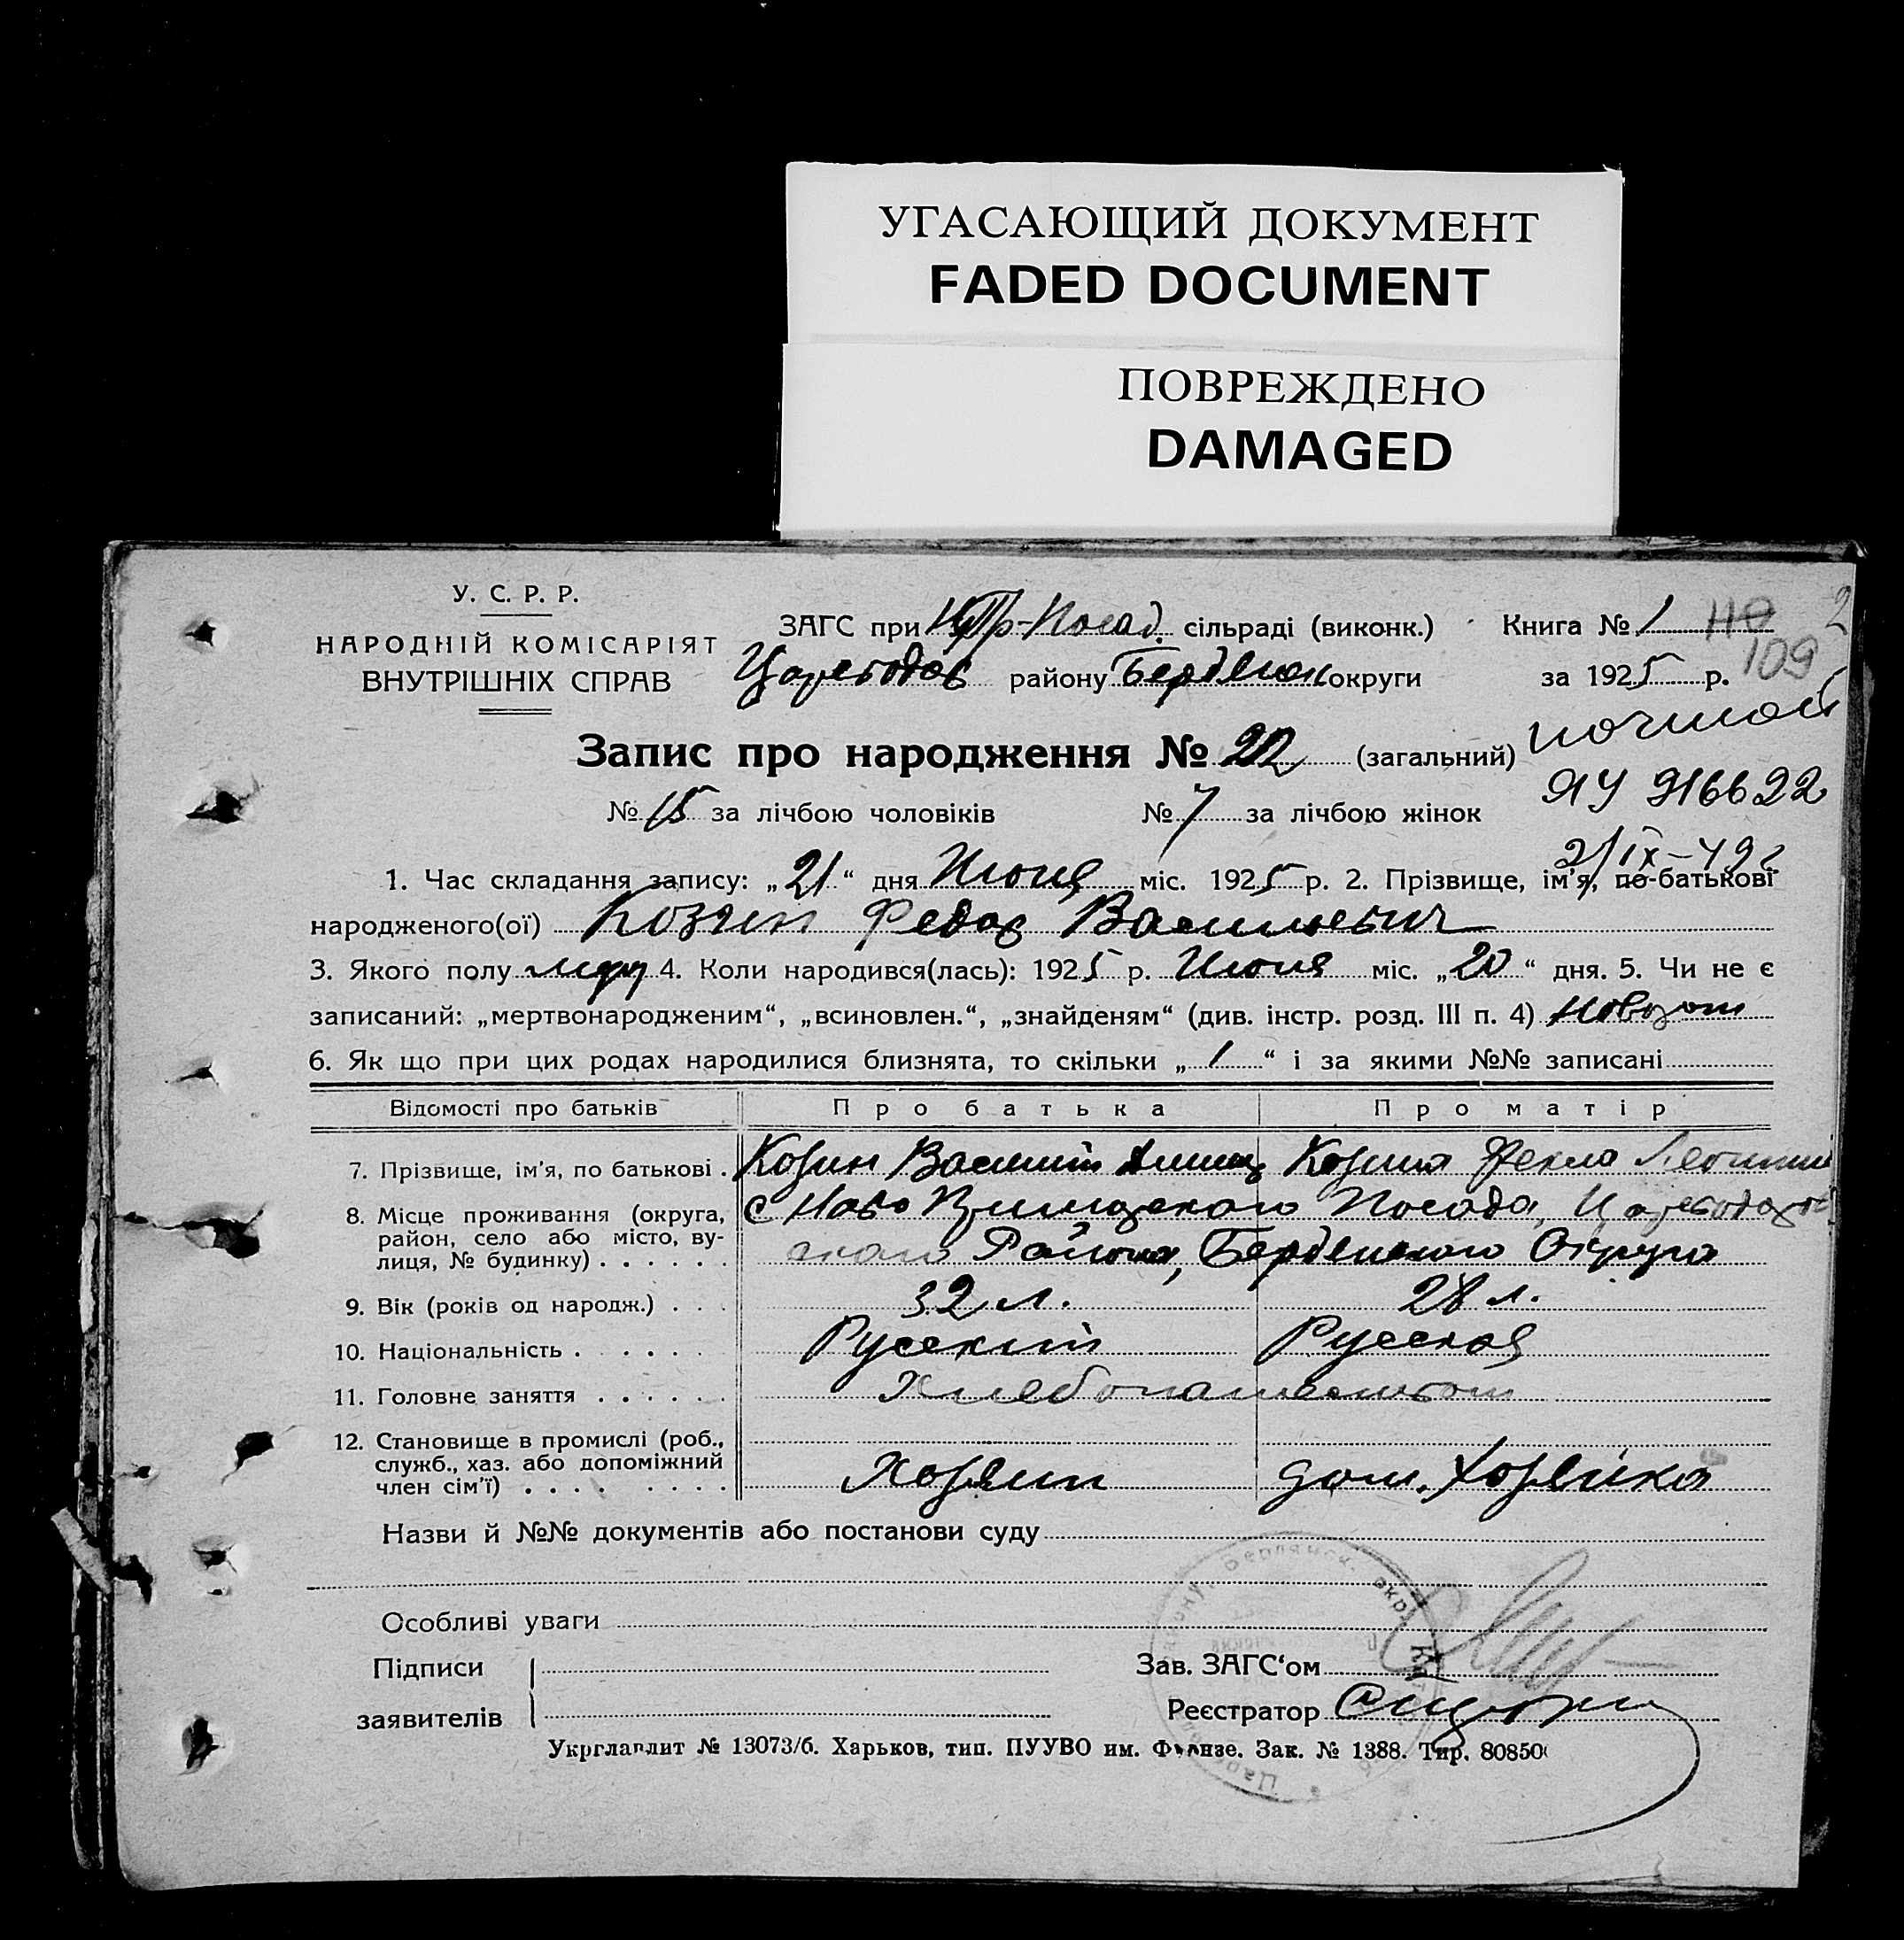 УГАСАЮЩИЙ ДОКУМЕНТ
FADED DOCUMENT
ПОВРЕЖДЕНО
DAMAGED
У. С. Р. Р.
НАРОДНІЙ КОМІСАРІЯТ
ВНУТРІШНІХ СПРАВ
ЗАГС при Н/Пр-Посад. сільраді (виконк.) Книга № 1 110 2
району Бердянск округи за 1925 р. 109
почтой
Запис про народження № 22 (загальний)
ЯУ 916622
№ 15 за лічбою чоловіків № 7 за лічбою жінок
2/IX-49г
1. Час складання запису: „21“ дня Июня міс. 1925 р. 2. Прізвище, ім'я, по-батькові
народженого(ої) Козин Федор Васильевич
3. Якого полу муж 4. Коли народився(лась): 1925 р. Июня міс. „20“ дня. 5. Чи не є
записаний: „мертвонародженим“, „всиновлен.“, „знайденям“ (див. інстр. розд. III п. 4)
6. Як що при цих родах народилися близнята, то скільки „1“ і за якими №№ записані
Відомості про батьків Про батька Про матір
7. Прізвище, ім'я, по батькові . Козин Василий Козина Фекла
8. Місце проживання (округа, с Ново Посада,
район, село або місто, ву- Района, Бердянского Округа
лиця, № будинку) . . . . . .
9. Вік (років од народж.) . . . 32 л. 28 л.
10. Національність . . . . . . Русский Русская
11. Головне заняття . . . . . . Хлебопашеством
12. Становище в промислі (роб.,
служб., хаз. або допоміжний Хозяин дом. хозяйка
член сім'ї) . . . . . . . .
Назви й №№ документів або постанови суду
Особливі уваги
Підписи
заявителів
Зав. ЗАГС'ом
Реєстратор
Укрглавлит № 13073/б. Харьков, тип. ПУУВО им. Фрунзе. Зак. № 1388. Тир. 80850